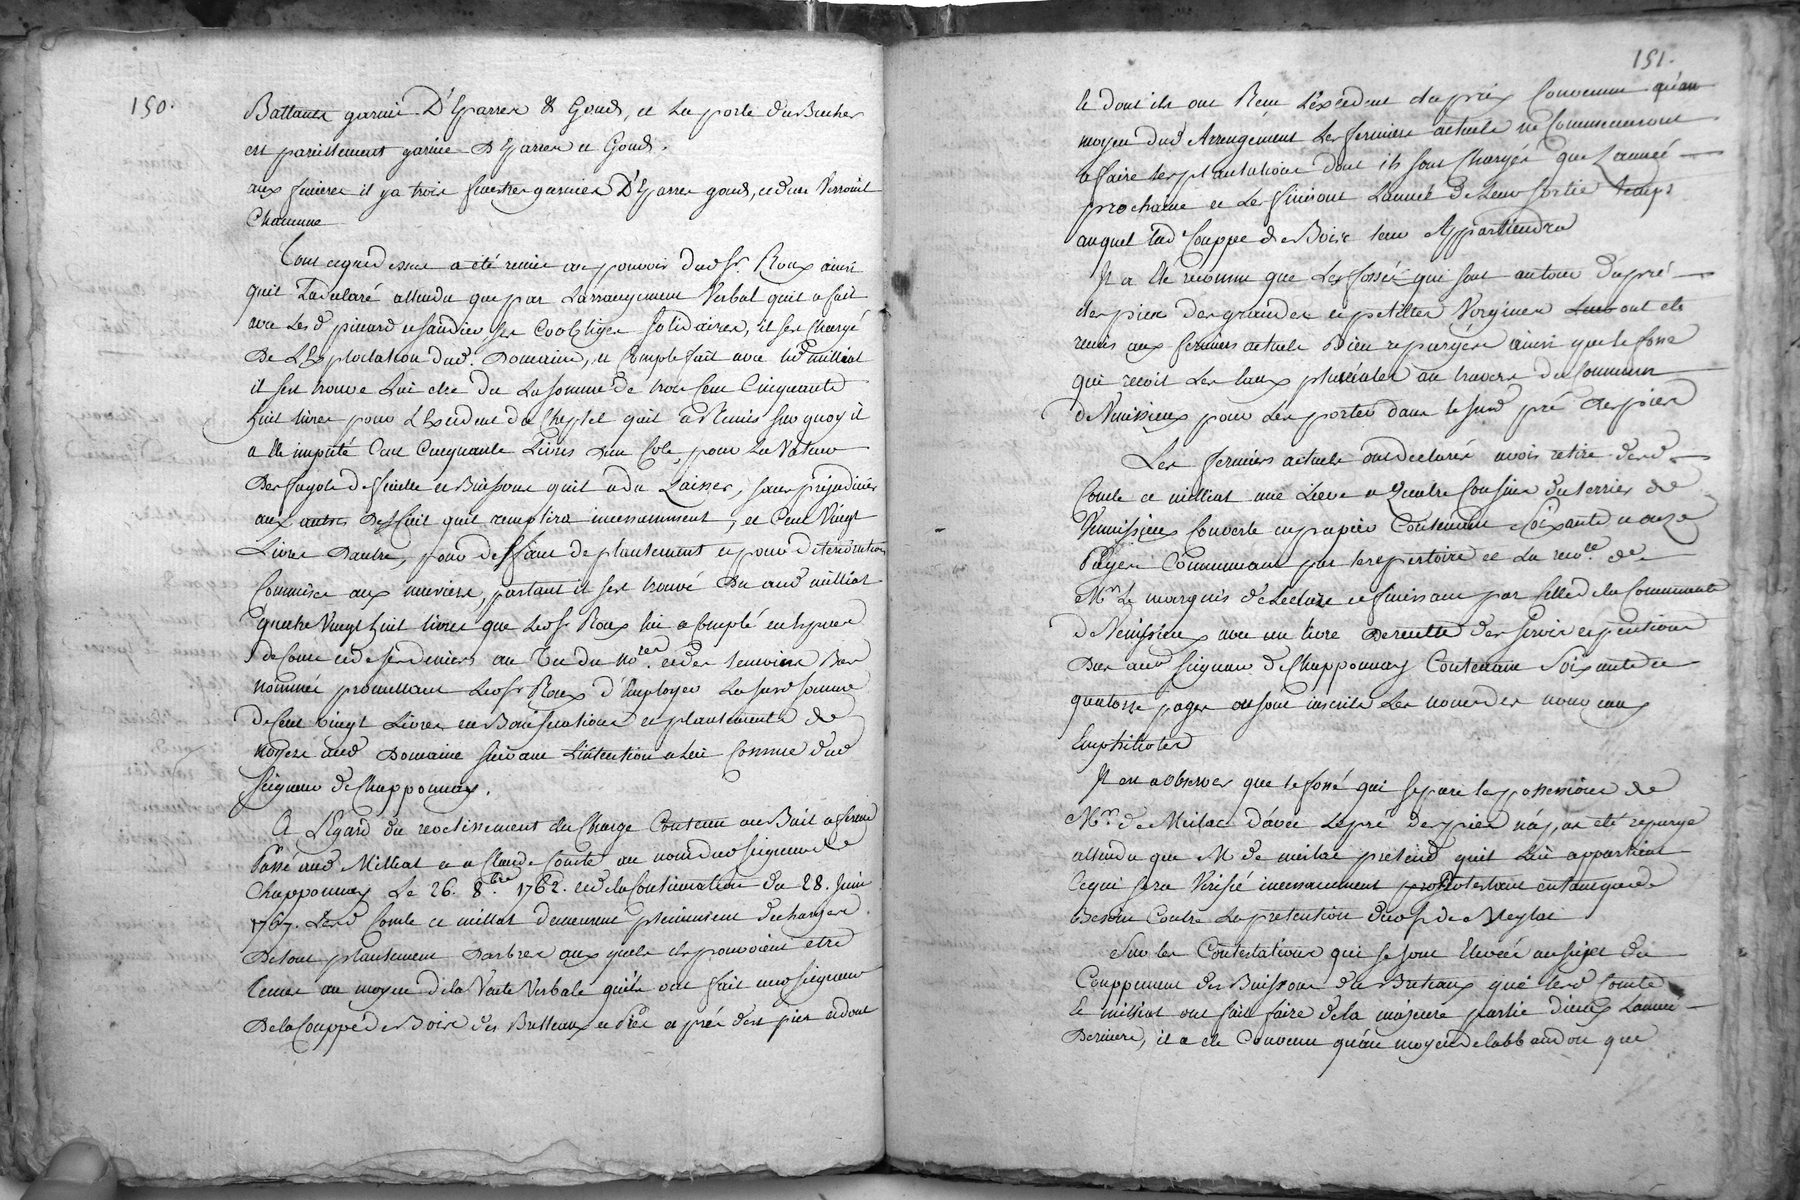 150.
Battants garnie D'Eparres & Gonds, et La porte du Bucher
est pareillement garnie D'Eparres et Gonds.
aux il y a trois fenestres garnies D'Eparres gonds, et d'un Verrouil
Chacunne
Tout ce que dessus a été remis au pouvoir dud. Sr. Roux ainsi
quil La declaré attendu que par Larrangement Verbal quil a fait
avec Lesd. pinard et Jandieu ses Coobligés Solidaires, il ses Chargé
De L'Exploitation dud. Domaine, et Compte fait avec led. milliat
il ses trouvé Lui etre du La somme De trois Cent Cinquante
huit livres pour L'Excedent du Cheptel quil a Remis sur quoy il
a été imputé Cent Cinquante Livres d'un Coté, pour La Valeur
Des fagots de et Buissons quil a du Laisser, sans préjudicier
aux autres quil remplira incessamment, et Cent Vingt
Livres Dautre, pour deffaut de plantement et pour deterioration
Commise aux muriers, partant il ses trouvé Du aud. milliat
quatre Vingt huit livres que Led. Sr. Roux lui a Compté en Especes
de Cours et de ses deniers au Veu du nore. et des temoins Bas
nommés promettant Led. Sr. Roux d'Employer La susd. somme
de Cent vingt Livres en Bonifications et plantements de
noyers aud. Domaine suivant Lintention a lui Connue dud.
Seigneur de Chapponnay.
A L'Egard du revetissement du Charge Contenu au Bail a ferme
Passé aud. Milliat et a Claude Comte au nom dud. Seigneur de
Chapponnay Le 26. 8.bre 1762. et de la Continuation du 28. Juin
1767. Lesd. Comte et milliat demeurent pleinement decharges
De tout plantement Darbres aux quels ils pouvoient etre
tenus au moyen de la Vente Verbale quils ont fait aud. Seigneur
De la Couppe de Bois des Butteaux et pré des pies et dont
151.
le dont ils ont Recu L'Excedent du prix Convenu qu'au
moyen dud. Arrengement Les fermiers actuels ne Commenceront
a faire Les plantations dont ils sont Chargés que Lannée
prochaine et Les finiront Lannée de Leur sortie temps
auquel Lad. Couppe de Bois leur Appartiendra
Il a été reconnu que Les fossés qui sont autour du pré
des pies des grandes et petittes Vorgines ont été
remis aux fermiers actuels Bien repurgés ainsi que le fossé
qui recoit Les Eaux pluviales au travers du Commun
de Venissieux pour Les porter dans le susd. pré des pies
Les fermiers actuels ont declaré avoir retiré desd.
Comte et milliat une Lieve a Quatre Cousins du terrier de
Venissieux Couverte en papier Contenant Soixante et onze
Pages Commencant par le repertoire et La reco.ce de
Mr. Le marquis de Leclure et finissant par Celle de la Communauté
de Venissieux avec un livre De recette des servis et pentions
Dus aud. Seigneur de Chapponnay Contenant Soixante et
quatorze pages ou sont inscrits Les noms des nouveaux
Emphitotes
Il est a observer que le fossé qui separe les possessions de
Mr. de Meilac d'avec Le pré des pies n'a pas été repurgé
attendu que M. de meilac pretend quil Lui appartient
Ce qui sera Verifié incessamment protestant en tant que de
Besoin Contre La pretention dud. Sr. de Meylac
Sur les Contestations qui se sont Elevées au sujet du
Couppement des Buissons des Buteaux que lesd. Comte
Et milliat ont fait faire de la majeure partie d'iceux Lannée
Derniere, il a été Convenu qu'au moyen de labbandon que